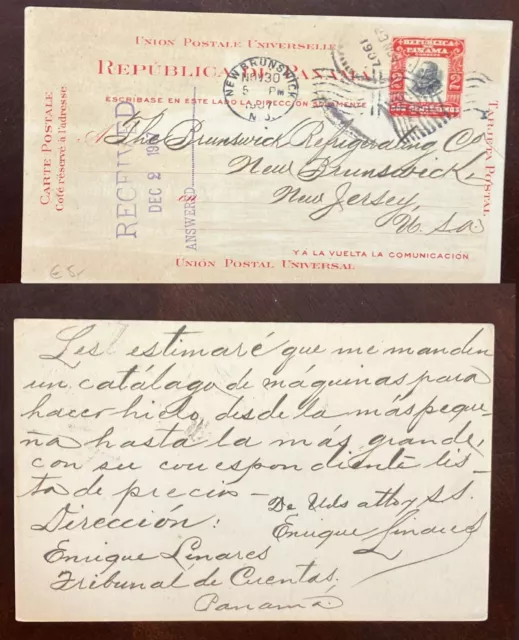 UNION POSTALE UNIVERSELLE
REPÚBLICA DE PANAMÁ
ESCRÍBASE EN ESTE LADO LA DIRECCIÓN SOLAMENTE
CARTE POSTALE
Coté réservé à l'adresse
TARJETA POSTAL
REPUBLICA DE PANAMA
2 2
DOS CENTESIMOS
NEW BRUNSWICK
NOV 30
5 PM
1907
N.J.
1907
RECEIVED
DEC 2 1907
ANSWERED
190
A The Brunswick Refrigerating Co
New Brunswick,
New Jersey,
U. S. A.
Y A LA VUELTA LA COMUNICACIÓN
UNIÓN POSTAL UNIVERSAL
Les estimaré que me manden
un catálago de máquinas para
hacer hielo, desde la más peque-
ña hasta la más grande,
con su correspondiente lis-
ta de precio.
De Uds atto y S.S.
Dirección:
Enrique Linares
Enrique Linares
Tribunal de Cuentas.
Panamá.